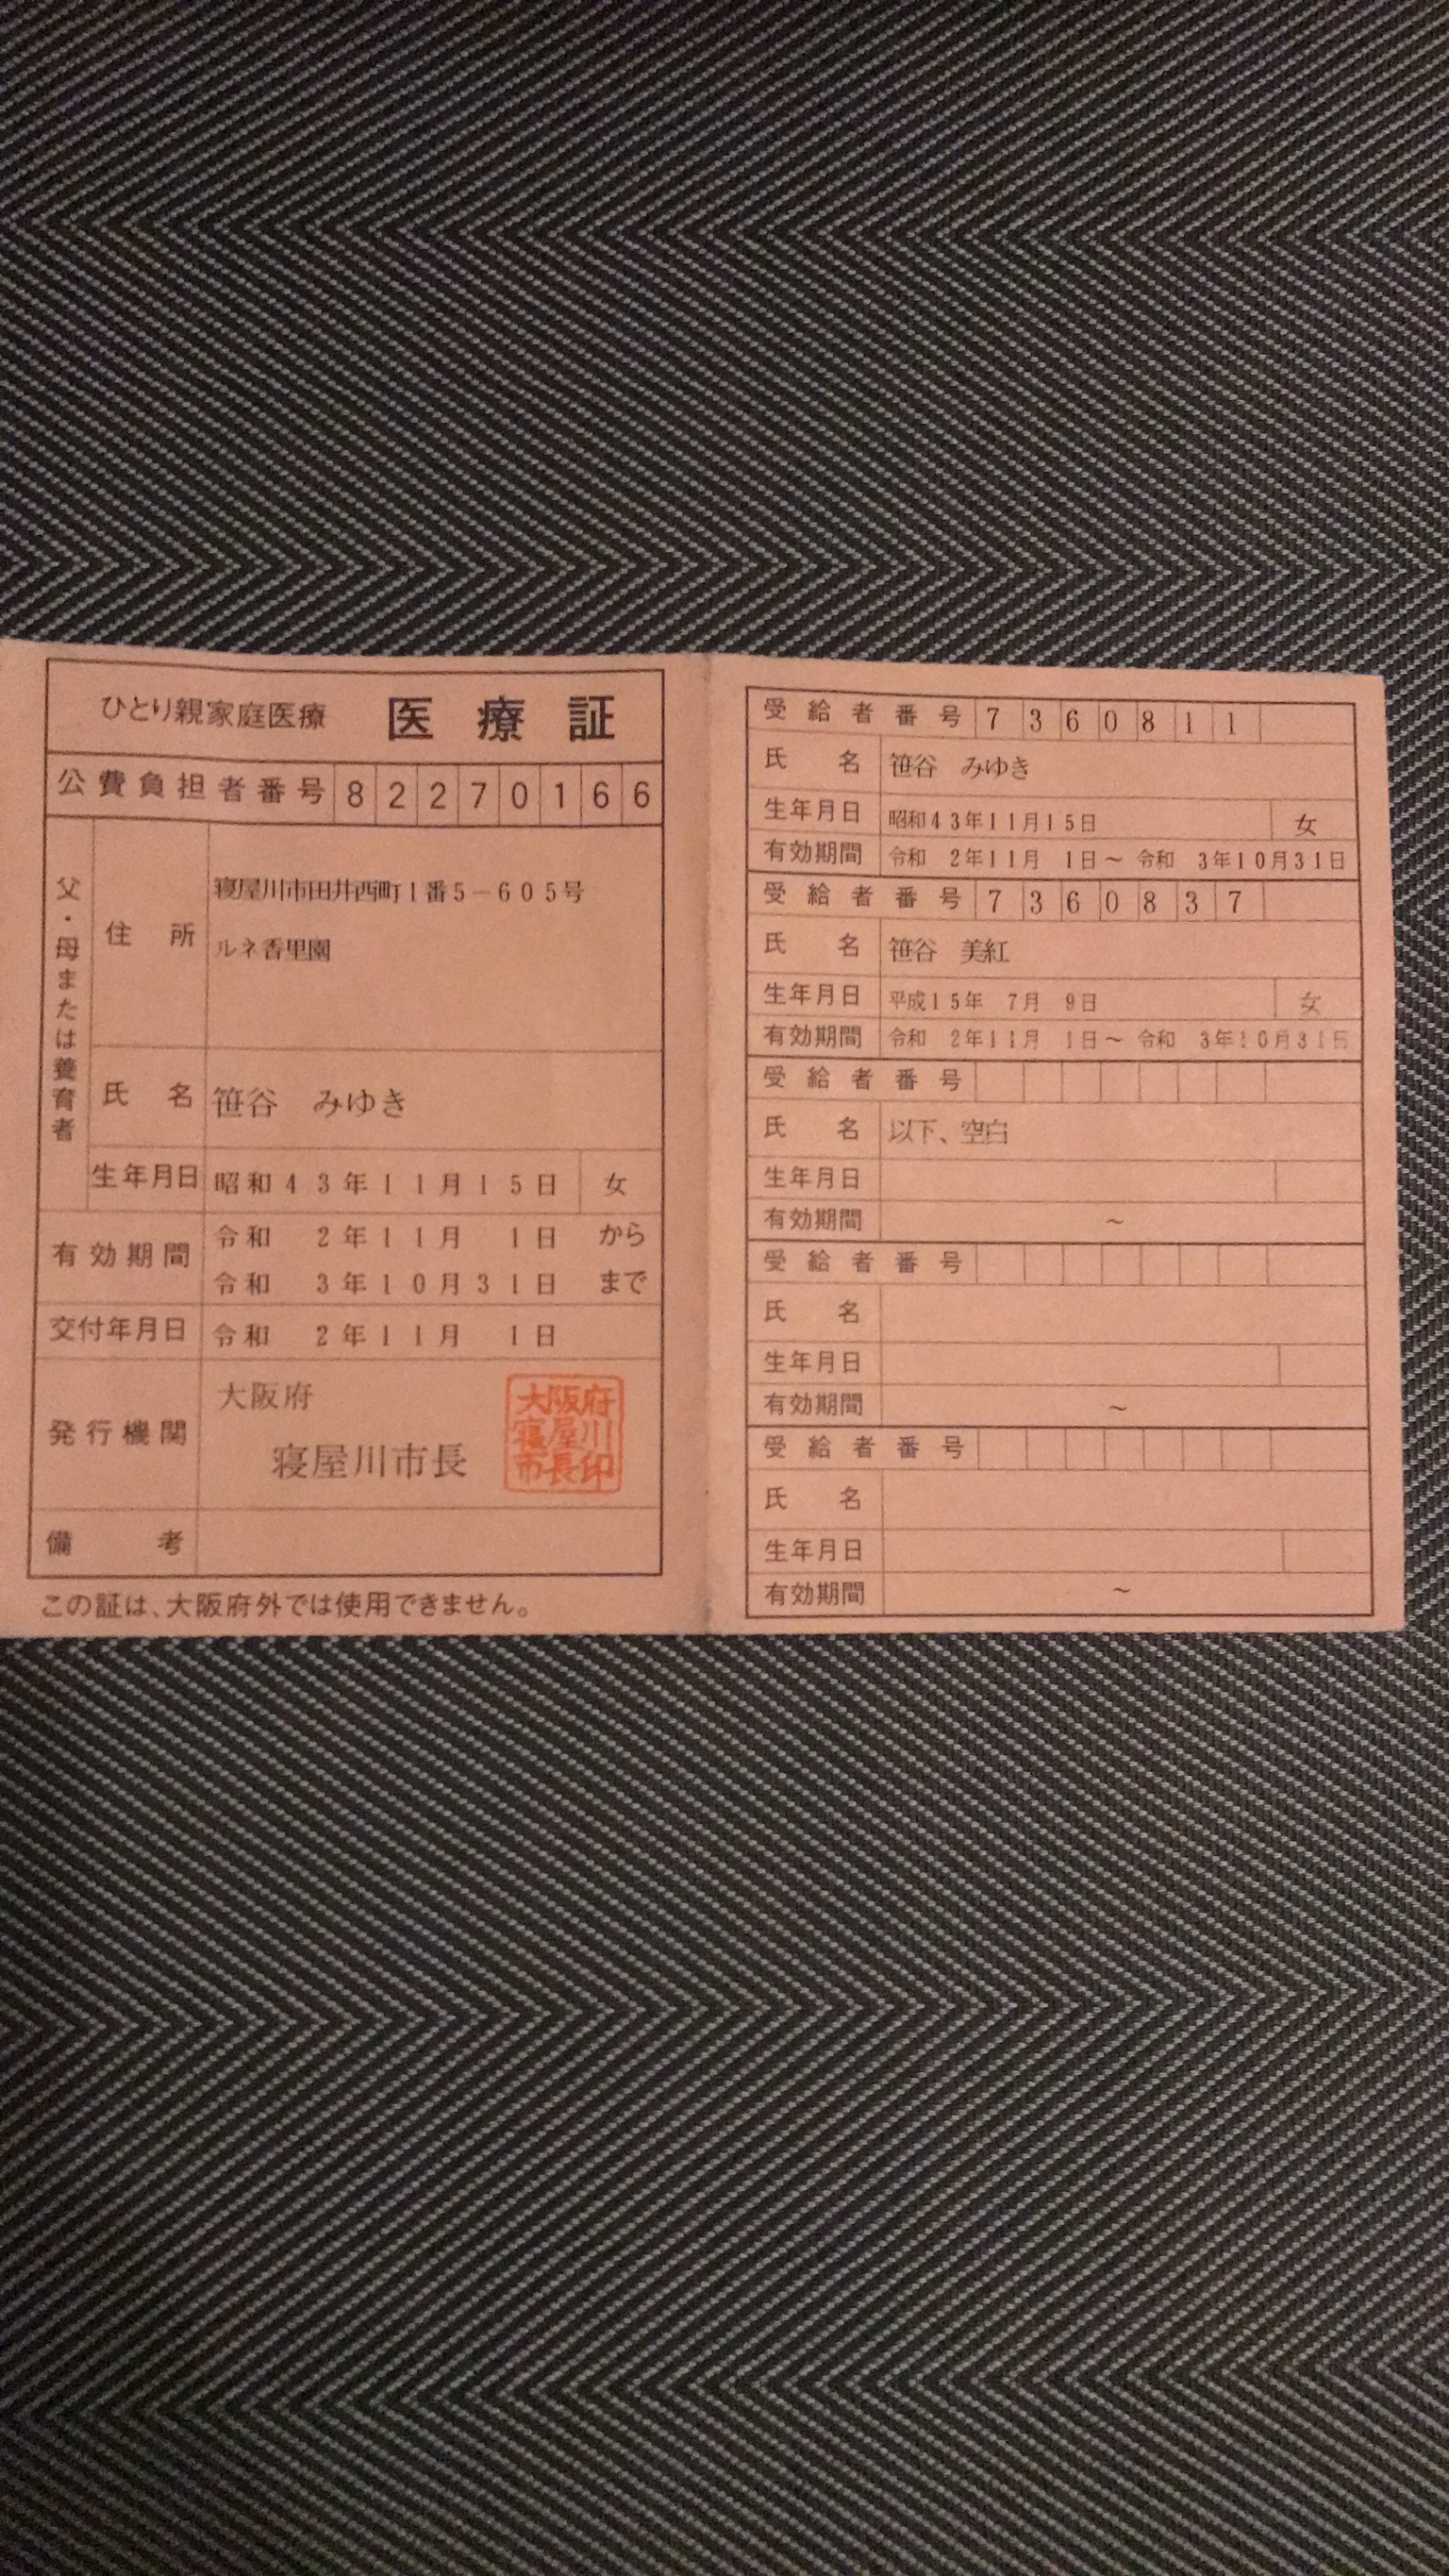 ひとり親家庭医療 医療証
公費負担者番号 82270166
父・母または養育者
住所 寝屋川市田井西町1番5-605号
ルネ香里園
氏名 笹谷 みゆき
生年月日 昭和43年11月15日 女
有効期間 令和 2年11月 1日 から
令和 3年10月31日 まで
交付年月日 令和 2年11月 1日
発行機関 大阪府
寝屋川市長
大阪府
寝屋川
市長印
備考
この証は、大阪府外では使用できません。
受給者番号 7360811
氏名 笹谷 みゆき
生年月日 昭和43年11月15日 女
有効期間 令和 2年11月 1日~令和 3年10月31日
受給者番号 7360837
氏名 笹谷 美紅
生年月日 平成15年 7月 9日 女
有効期間 令和 2年11月 1日~令和 3年10月31日
受給者番号
氏名 以下、空白
生年月日
有効期間 ~
受給者番号
氏名
生年月日
有効期間 ~
受給者番号
氏名
生年月日
有効期間 ~